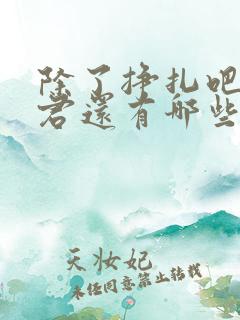 除了挣扎吧
君還有哪些
天妝妃
未经同意禁止转载